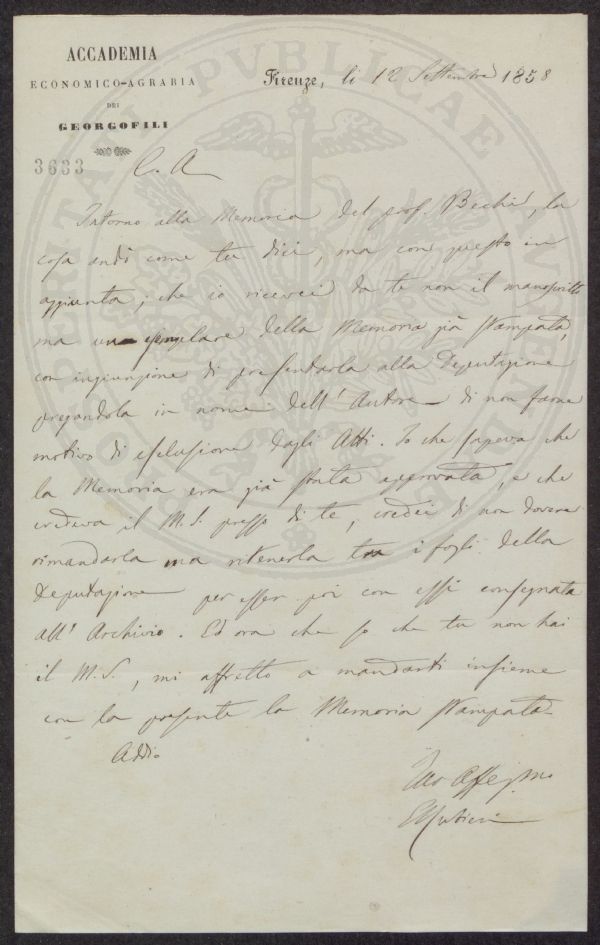 ACCADEMIA
ECONOMICO-AGRARIA
DEI
GEORGOFILI
3633
Firenze, li 12 Settembre 1858
C. A.
Intorno alla Memoria del prof. Bechi, la
cosa andò come tu dici, ma con questo in
aggiunta; che io ricevei da te non il manoscritto
ma un esemplare della Memoria già stampata,
con ingiunzione di presentarla alla Deputazione
pregandola in nome dell'Autore di non farne
motivo di esclusione dagli Atti. Io che sapeva che
la Memoria era già stata approvata, e che
credeva il M.S. presso di te, credei di non dovere
rimandarla ma ritenerla tra i fogli della
Deputazione per esser poi con essi consegnata
all'Archivio. Ed ora che so che tu non hai
il M.S., mi affretto a mandarti insieme
con la presente la Memoria stampata.
Addio
Tuo Affezmo